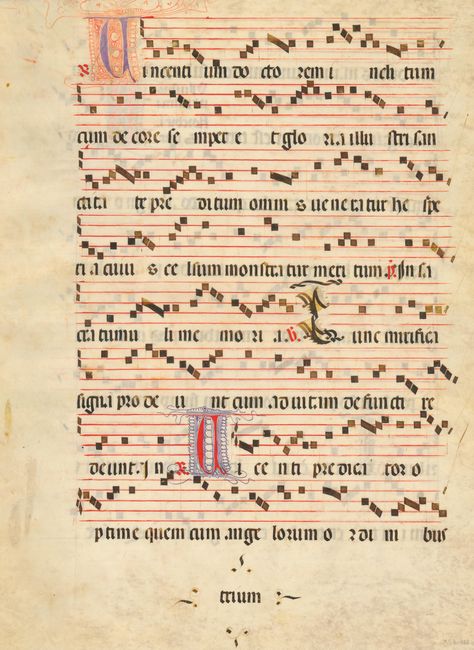 R Vincenti um do cto rem i ncli tum
cum de core se mper e t glo ria illu stri san
ctita te pre di tum omni s ue ne ra tur he spe
ri a cuiu s ce lsum monstra tur meri tum. V In sa
cra tumu li me mo ri a. b. Tunc mirifica
signa pro de u nt cum ad ui tam de functi re
deunt. In R Vi ce nti predica tor o
ptime quem cum ange lorum o rdi ni bus
trium